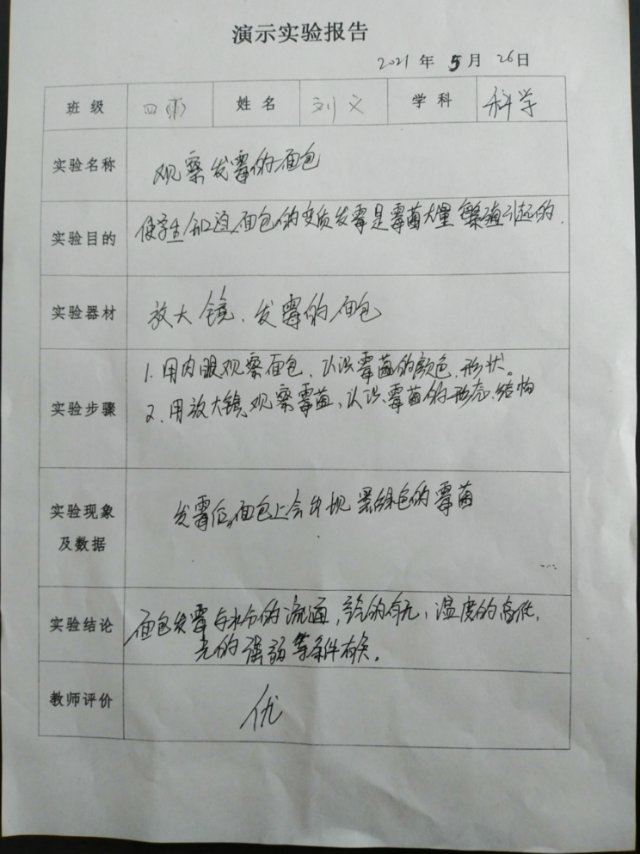 演示实验报告
2021 年 5 月 26日
班级 四 姓名 刘文 学科 科学
实验名称 观察发霉的面包
实验目的 使学生知道,面包的变质发霉是霉菌大量繁殖引起的.
实验器材 放大镜、发霉的面包
实验步骤 1. 用肉眼观察面包,认识霉菌的颜色、形状。
2. 用放大镜观察霉菌,认识霉菌的形态、结构
实验现象及数据 发霉后,面包上会出现黑绿色的霉菌
实验结论 面包发霉与水分的流通,的有无、温度的高低,
光的强弱等条件有关。
教师评价 优